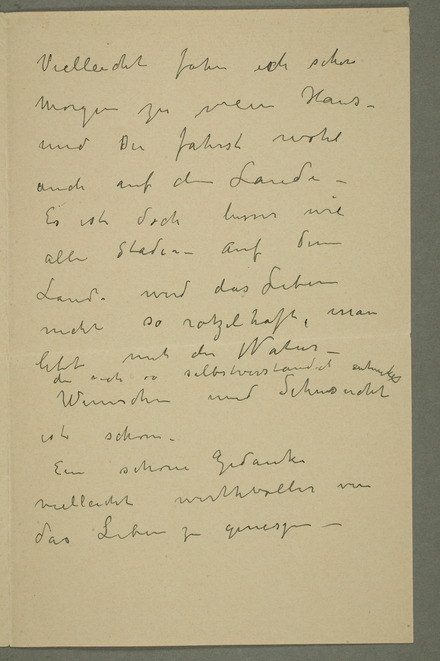 Vielleicht fahre ich schon
Morgen zu mein Haus –
und Du fährst wohl
auch auf dem Lande –
Es ist doch besser wie
alle Städte – Auf dem
Land. wird das Leben
nicht so rätzelhaft, man
lebt mit der Natur –
die auch so selbstverständlich
Wünschen und Sehnsucht
ist schön –
Ein schöner Gedanke
vielleicht werthvoller wie
das Leben zu